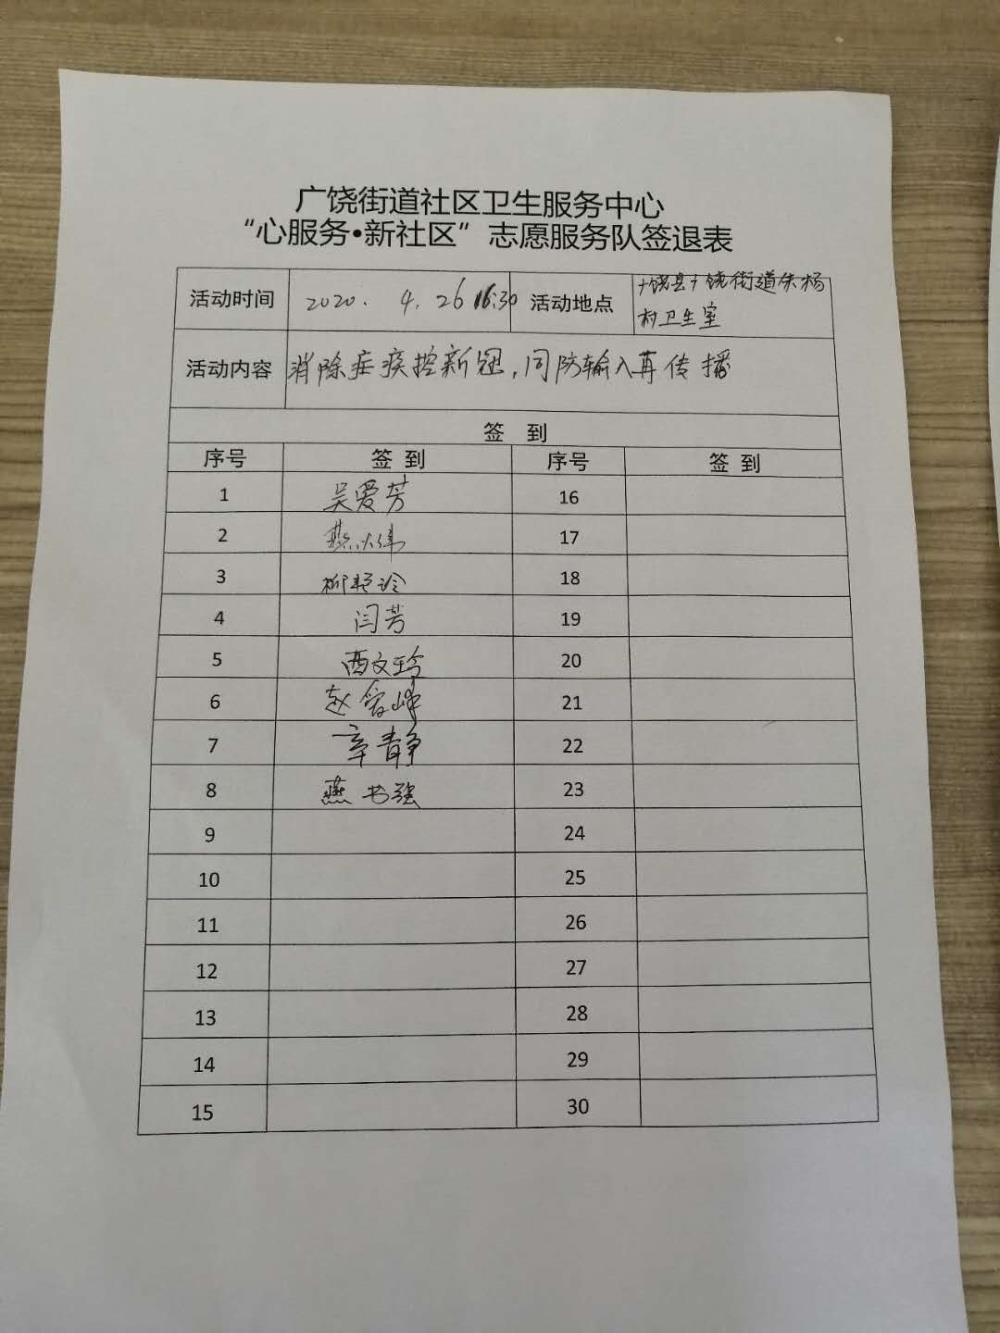 广饶街道社区卫生服务中心
“心服务•新社区”志愿服务队签退表
活动时间 2020. 4. 26 16:30 活动地点 广饶县广饶街道朱杨
村卫生室
活动内容 消除疟疾控新冠,同防输入再传播
签 到
序号 签 到 序号 签 到
1 吴爱芳 16
2 燕 17
3 柳艳玲 18
4 闫芳 19
5 西文玲 20
6 赵爱峰 21
7 辛静 22
8 燕书强 23
9 24
10 25
11 26
12 27
13 28
14 29
15 30